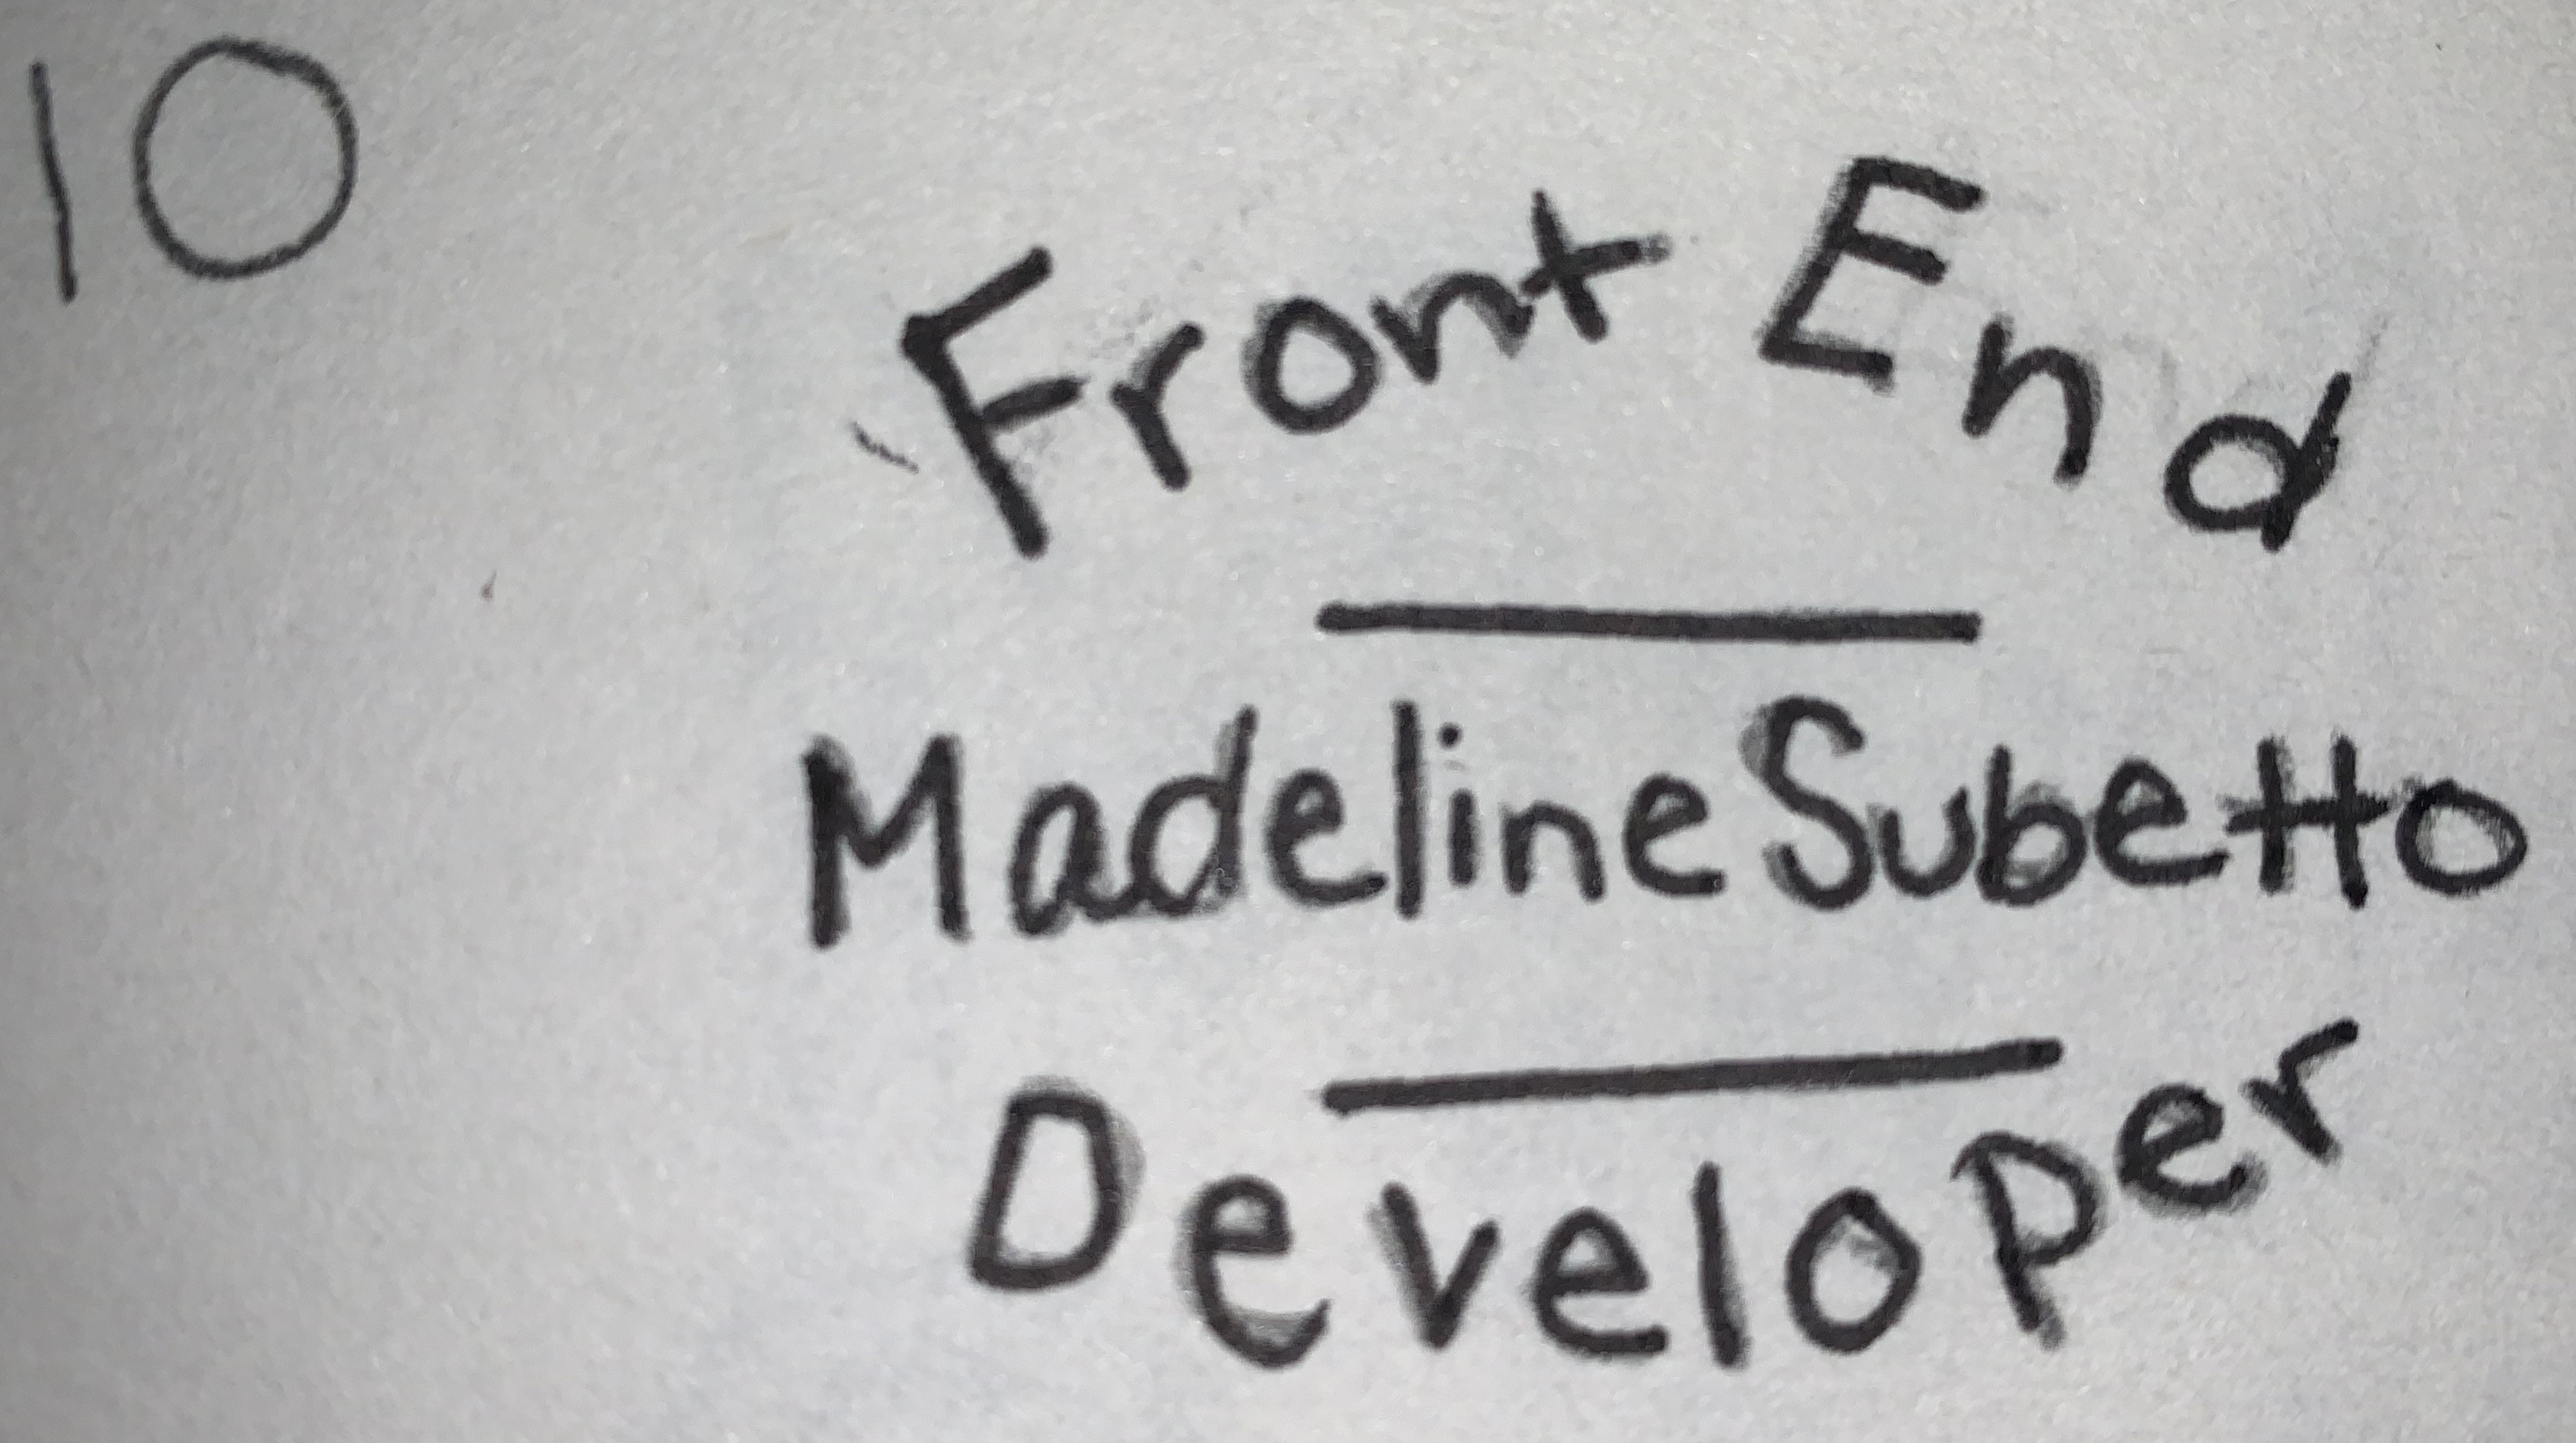 10
Front End
Madeline Subetto
Developer